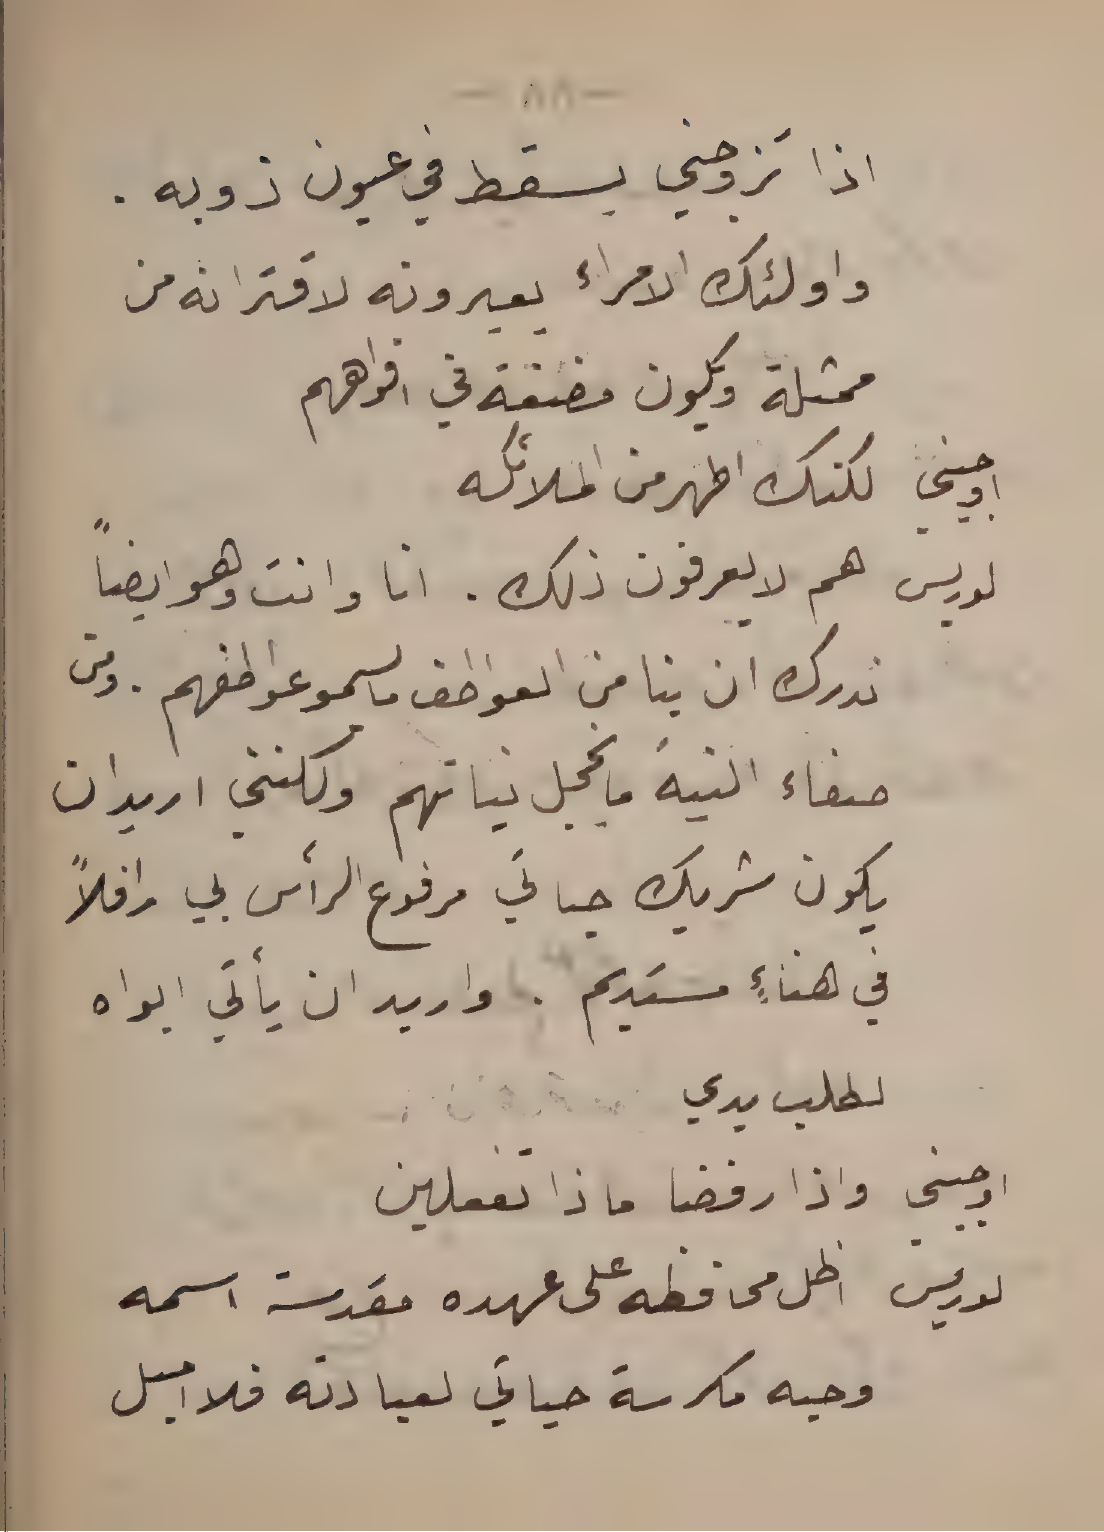 — ٨٨ —
اذا تزوجني يسقط في عيون ذويه .
واولئك الامراء يعيرونه لاقترانه من
ممثلة ويكون مضغة في افواههم
اوجيني لكنك اطهر من الملائكه
لوريس هم لا يعرفون ذلك . انا وانت وهو ايضاً
ندرك ان بنا من العواطف ما يسمو عواطفهم . ومن
صفاء النية ما يخجل نياتهم ولكنني اريد ان
يكون شريك حياتي مرفوع الرأس بي رافلاً
في هناءٍ مستديم . واريد ان يأتي ابواه
لطلب يدي
اوجيني واذا رفضا ماذا تفعلين
لوريس اظل محافظه على عهده مقدسة اسمه
وحبه مكرسة حياتي لعبادته فلا اميل